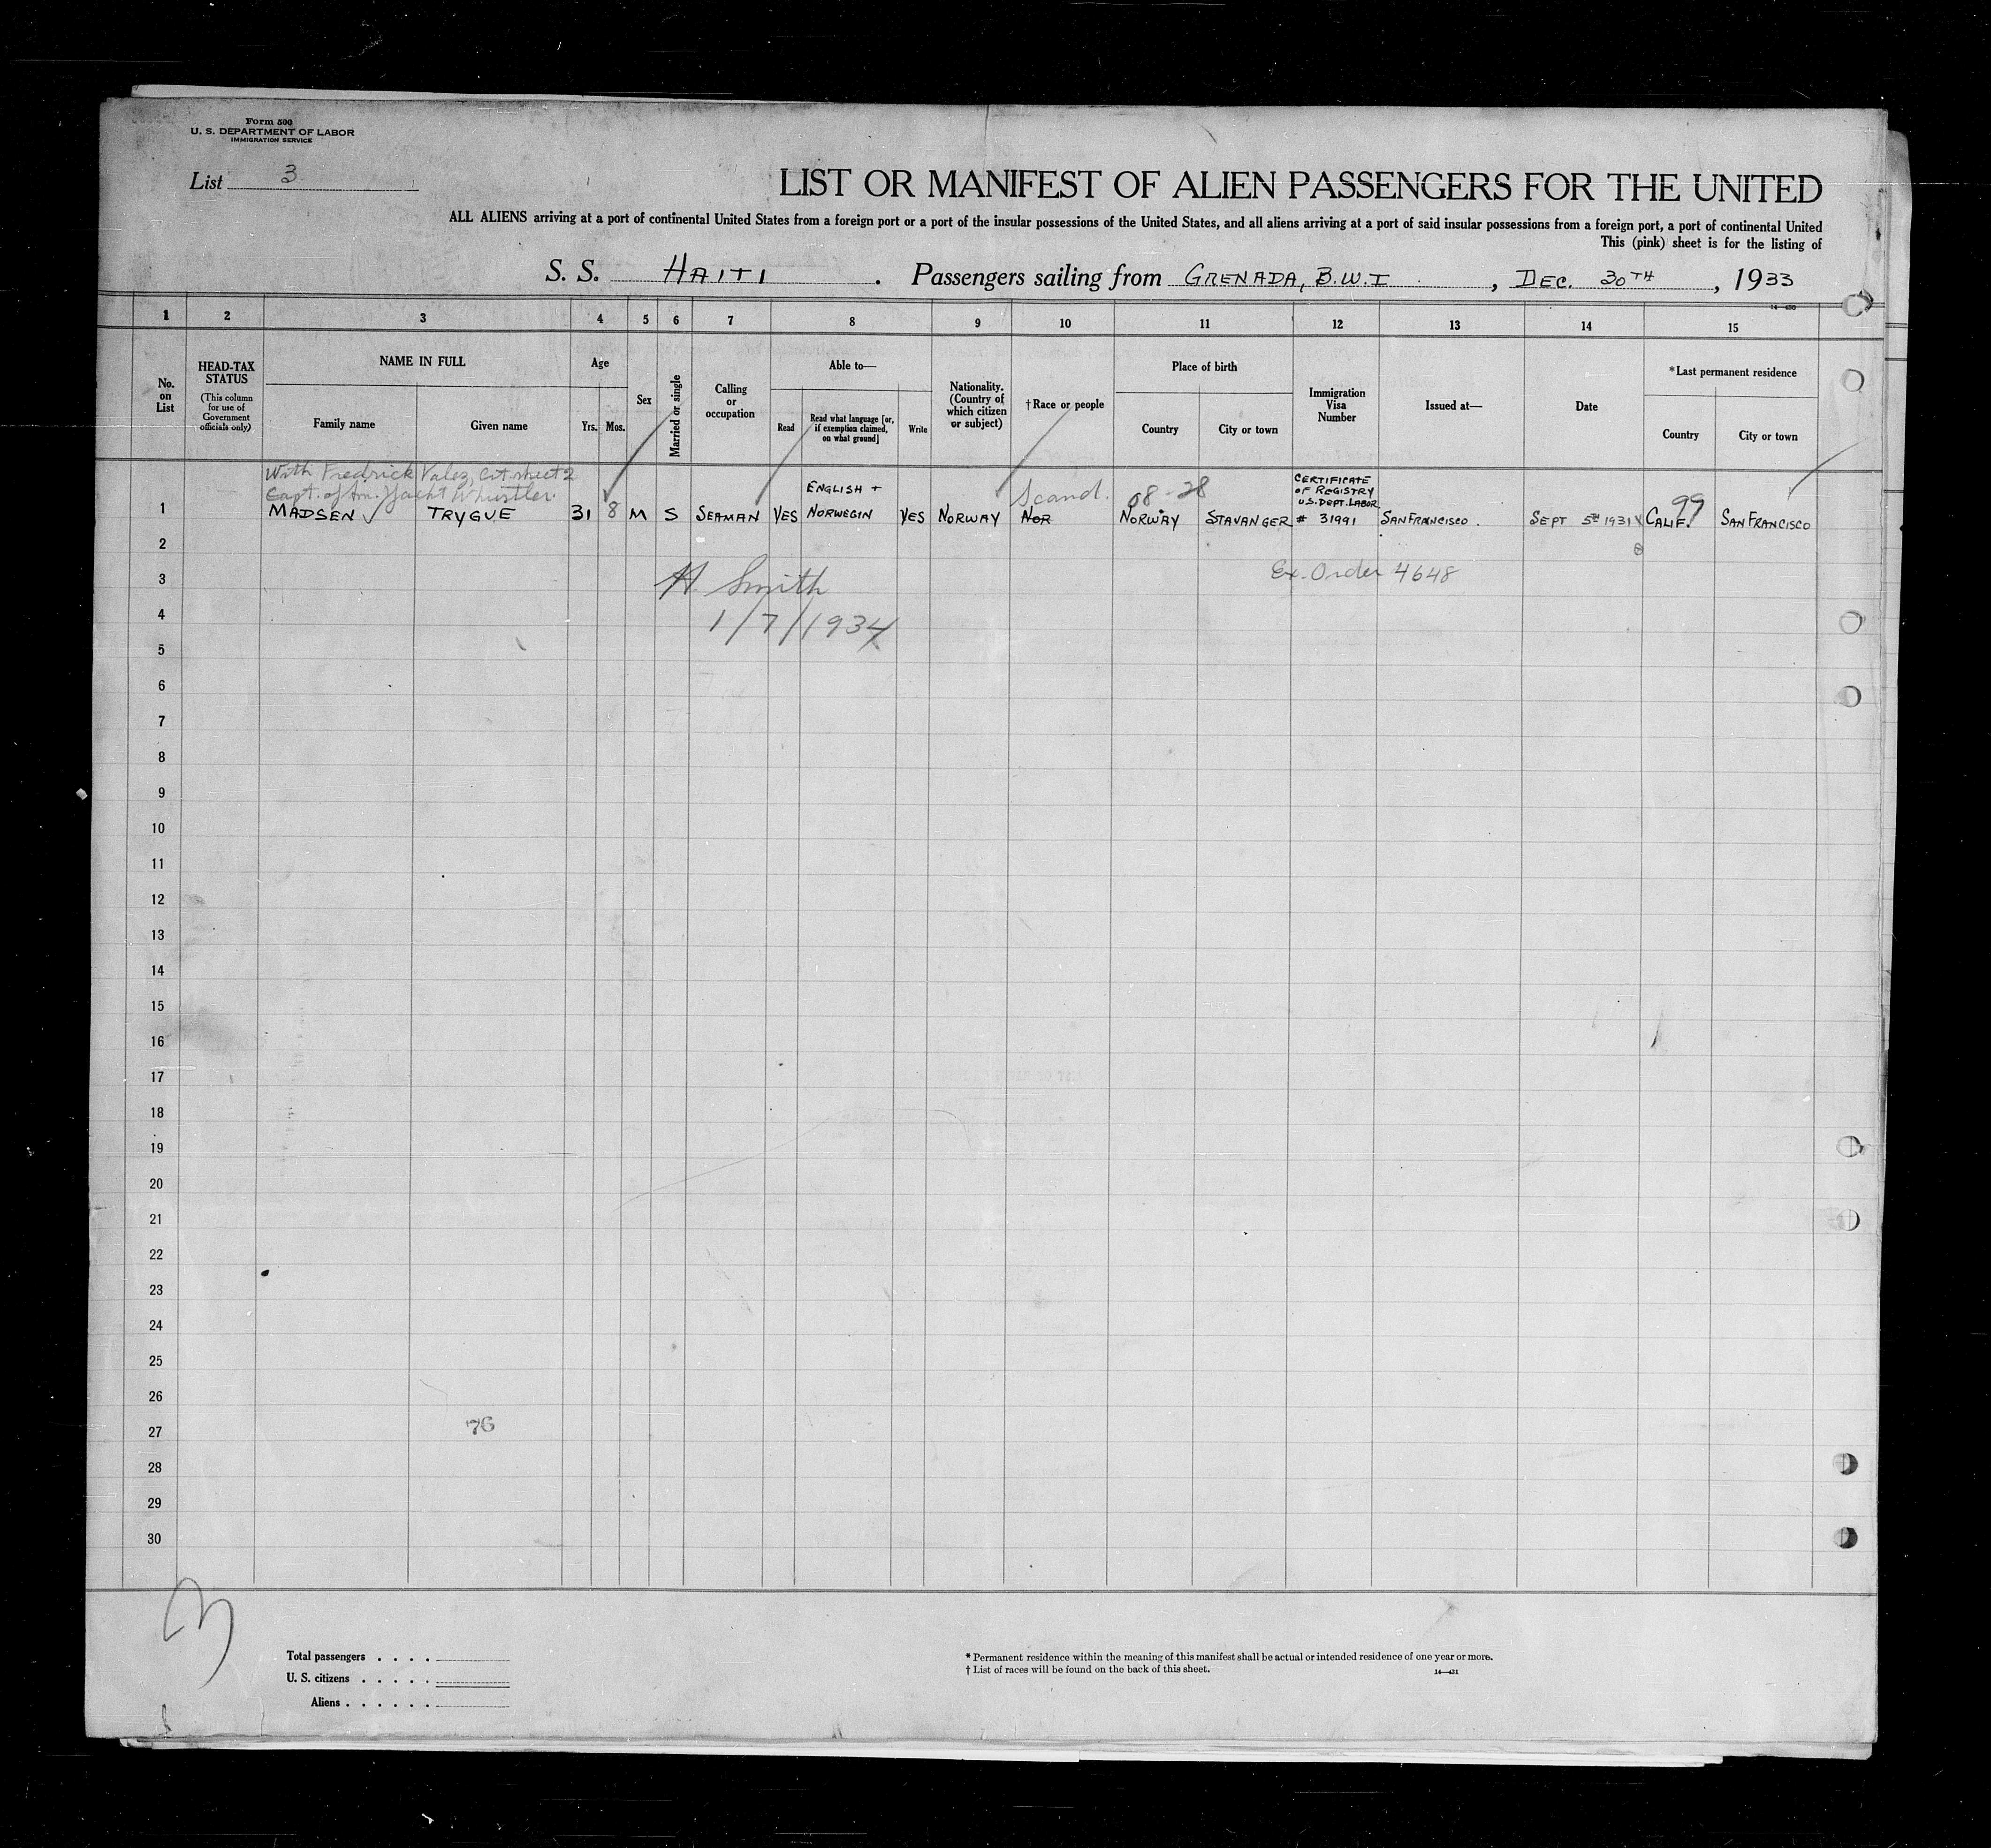 Form 500
U. S. DEPARTMENT OF LABOR
IMMIGRATION SERVICE
List 3
LIST OR MANIFEST OF ALIEN PASSENGERS FOR THE UNITED
ALL ALIENS arriving at a port of continental United States from a foreign port or a port of the insular possessions of the United States, and all aliens arriving at a port of said insular possessions from a foreign port, a port of continental United
This (pink) sheet is for the listing of
S. S. HAITI . Passengers sailing from GRENADA, B.W.I , DEC. 30TH , 1933
1 2 3 4 5 6 7 8 9 10 11 12 13 14 15
No. on List
HEAD-TAX STATUS
(This column for use of Government officials only)
NAME IN FULL
Family name
Given name
Age
Yrs.
Mos.
Sex
Married or single
Calling or occupation
Able to—
Read
Read what language [or, if exemption claimed, on what ground]
Write
Nationality. (Country of which citizen or subject)
†Race or people
Place of birth
Country
City or town
Immigration Visa Number
Issued at—
Date
*Last permanent residence
Country
City or town
With Fredrick Valez, Cit. sheet 2
Capt. of Am. Yacht Whistler.
1 MADSEN TRYGVE 31 8 M S SEAMAN YES ENGLISH + NORWEGIN YES NORWAY Scand. NOR 08-28 NORWAY STAVANGER CERTIFICATE OF REGISTRY U.S. DEPT. LABOR # 31991 SAN FRANCISCO. SEPT 5TH 1931 CALIF. 99 SAN FRANCISCO
2
3 H Smith Ex. Order 4648
4 1/7/1934
5
6
7
8
9
10
11
12
13
14
15
16
17
18
19
20
21
22
23
24
25
26
27 76
28
29
30
Total passengers . . . .
U. S. citizens . . . . .
Aliens . . . . . .
* Permanent residence within the meaning of this manifest shall be actual or intended residence of one year or more.
† List of races will be found on the back of this sheet.
14—431